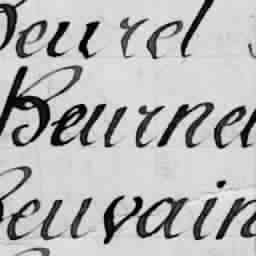 Beurel
Beurne
Beuvain